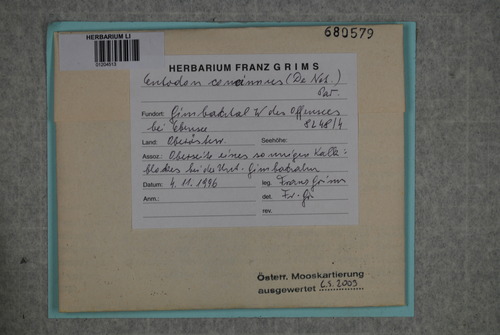 680579
HERBARIUM LI
01204513
HERBARIUM FRANZ GRIMS
Entodon concinnus (De Not.)
Par.
Fundort: Gimbachtal W des Offensees
bei Ebensee 8248/4
Land: Oberösterr. Seehöhe:
Assoz.: Oberseite eines sonnigen Kalk-
blockes bei der Gimbachalm
Datum: 4.11.1996 leg. Franz Grims
Anm.: det. Fr. Gr
rev.
Österr. Mooskartierung
ausgewertet 2009